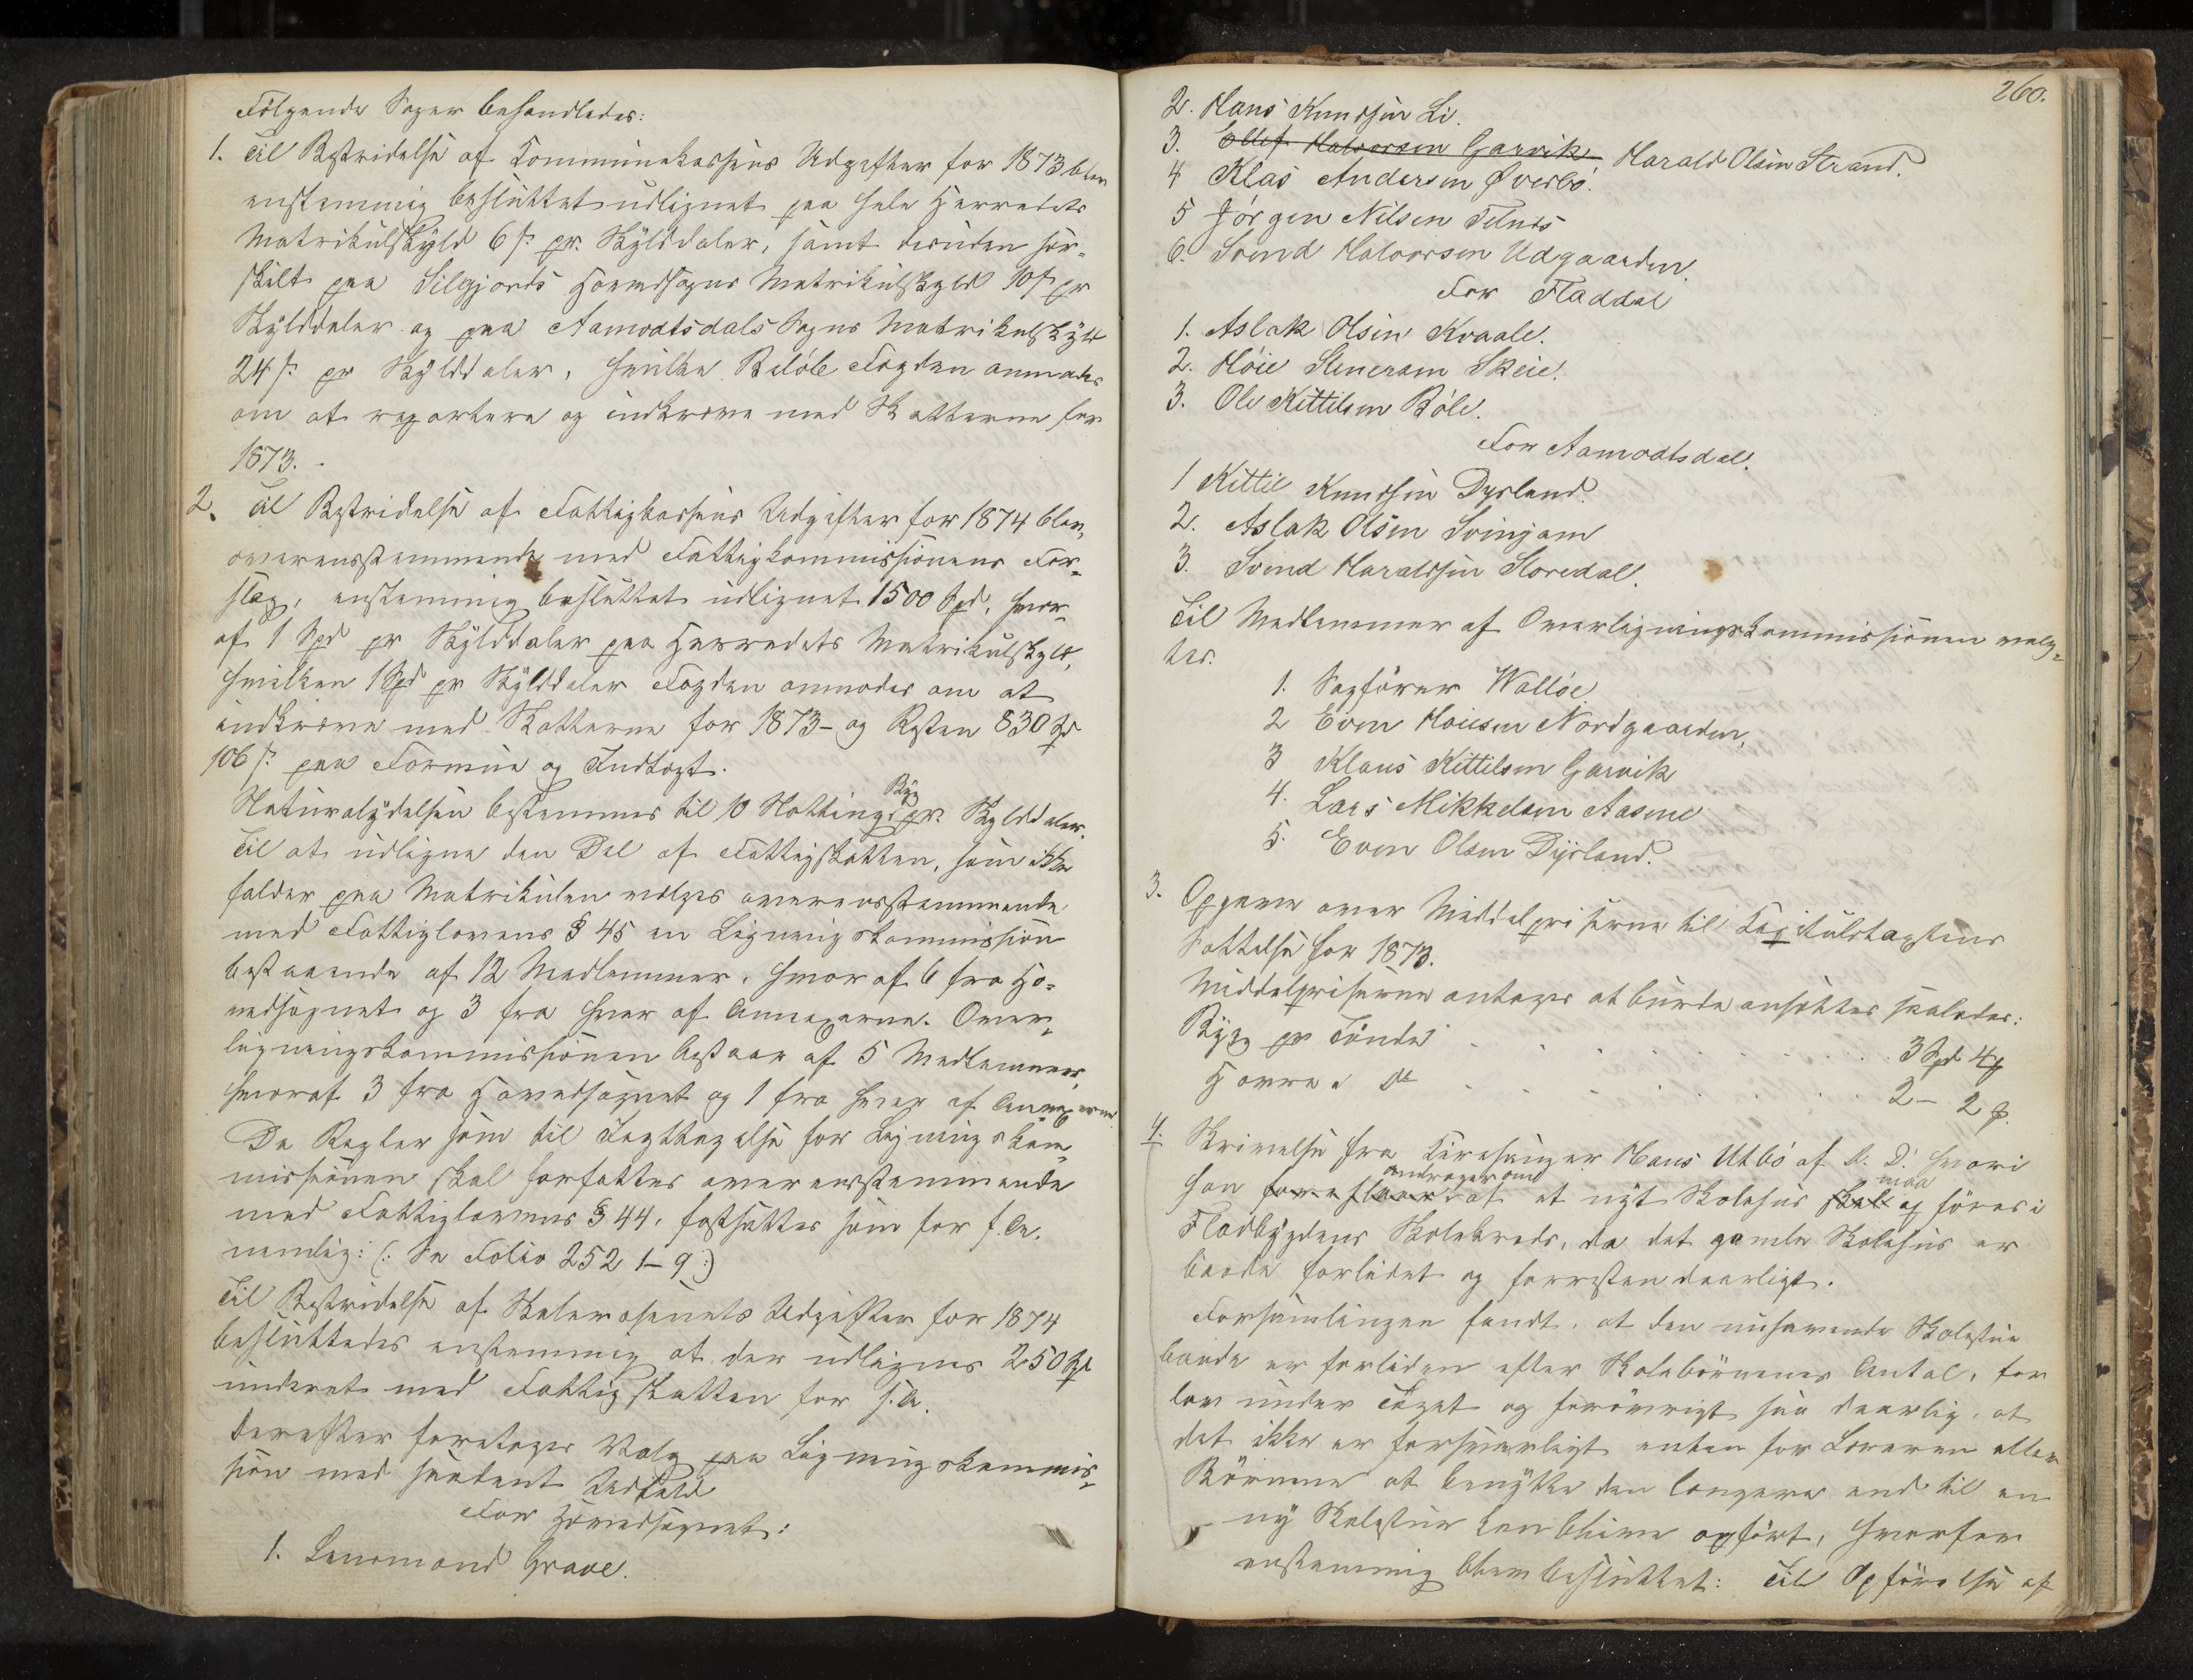 Følgende Sager behandledes:
1. Til Bestridelse af Kommunekassens Udgifter for 1873 blev
enstemmig besluttet udlignet paa hele Herredets
Matrikulskyld 6 s. pr. Skylddaler, samt desuden sær-
skilt paa Silgjords Hovedsogns Matrikulskyld 10 s. pr
Skylddaler og paa Aamodtsdals Sogns Matrikulskyld
24 s. pr Skylddaler, hvilke Beløb Fogden anmodes
om at repartere og indkræve med Skatterne for
1873. -
2. Til Bestridelse af Fattigkassens Udgifter for 1874 blev,
overensstemmende med Fattigkommissionens For-
slag, enstemmig besluttet udlignet 1500 Spd, hvor-
af 1 Spd pr Skylddaler paa Herredets Matrikulskyld,
hvilken 1 Spd pr Skylddaler Fogden anmodes om at
indkræve med Skatterne for 1873 - og Resten 830 Spd
106 s. paa Formue og Indtægt.
Naturalydelsen bestemmes til 10 Potting Byg pr. Skylddaler.
Til at udligne den Del af Fattigskatten, som ikke
falder paa Matrikulen vælges overensstemmende
med Fattiglovens § 45 en Ligningskommission
bestaaende af 12 Medlemmer, hvoraf 6 fra Ho-
vedsognet og 3 fra hver af Annexerne. Over-
ligningskommissionen bestaar af 5 Medlemmer,
hvoraf 3 fra Hovedsognet og 1 fra hver af Annexerne
De Regler som til Iagttagelse for Ligningskom-
missionen skal forfattes overensstemmende
med Fattiglovens § 44, fastsættes som for f. A.
nemlig: (: Se Folio 252 1-9 :)
Til Bestridelse af Skolevæsenets Udgifter for 1874
besluttedes enstemmig at der udlignes 250 Spd
inderet med Fattigskatten for s. A.
Derefter foretoges Valg paa Ligningskommis-
sion med saadant Udfald
For Hovedsognet:
1. Lensmand Grave.
260.
2. Hans Knudsen Li.
3. Ellef Halvorsen Garvik Harald Olsen Strand.
4 Klas Andersen Øverbö.
5 Jörgen Nilsen Telnes
6. Svend Halvorsen Udgaarden.
For Fladdal
1. Aslak Olsen Kvaale.
2. Höie Stenersen Skeie.
3. Ole Kittilsen Böle.
For Aamodtsdal.
1 Kittil Knudsen Dyrland.
2. Aslak Olsen Svinjam
3. Svend Haraldsen Storedal.
Til Medlemmer af Overligningskommissionen valg-
tes.
1. Sagförer Wallöe
2 Even Höiesen Nordgaarden,
3 Klaus Kittilsen Garvik
4. Lars Mikkelsen Aasene
5. Even Olsen Dyrland.
3. Opgave over Middelpriserne til Kapitulstaxtens
Sættelse for 1873.
Middelpriserne antages at burde ansættes saaledes:
Byg pr Tönde . . . . . . . . . 3 Spd 4
Havre " do . . . . . . . . . 2 - 2
4. Skrivelse fra Kirkesanger Hans Utbö af d. D. hvori
han foreslaar andrager om at et nyt Skolehus skal maa opföres i
Fladbygdens Skolekreds, da det gamle Skolehus er
baade forlidet og forresten daarligt.
Forsamlingen fandt, at den nuhavende Skolestue
baade er forliden efter Skolebörnenes Antal, for
lav under Taget og forövrigt saa daarlig, at
det ikke er forsvarligt enten for Læreren eller
Börnene at benytte den længere end til en
ny Skolestue kan blive opfört, hvorfor
enstemmig blev besluttet: Til Opförelse af